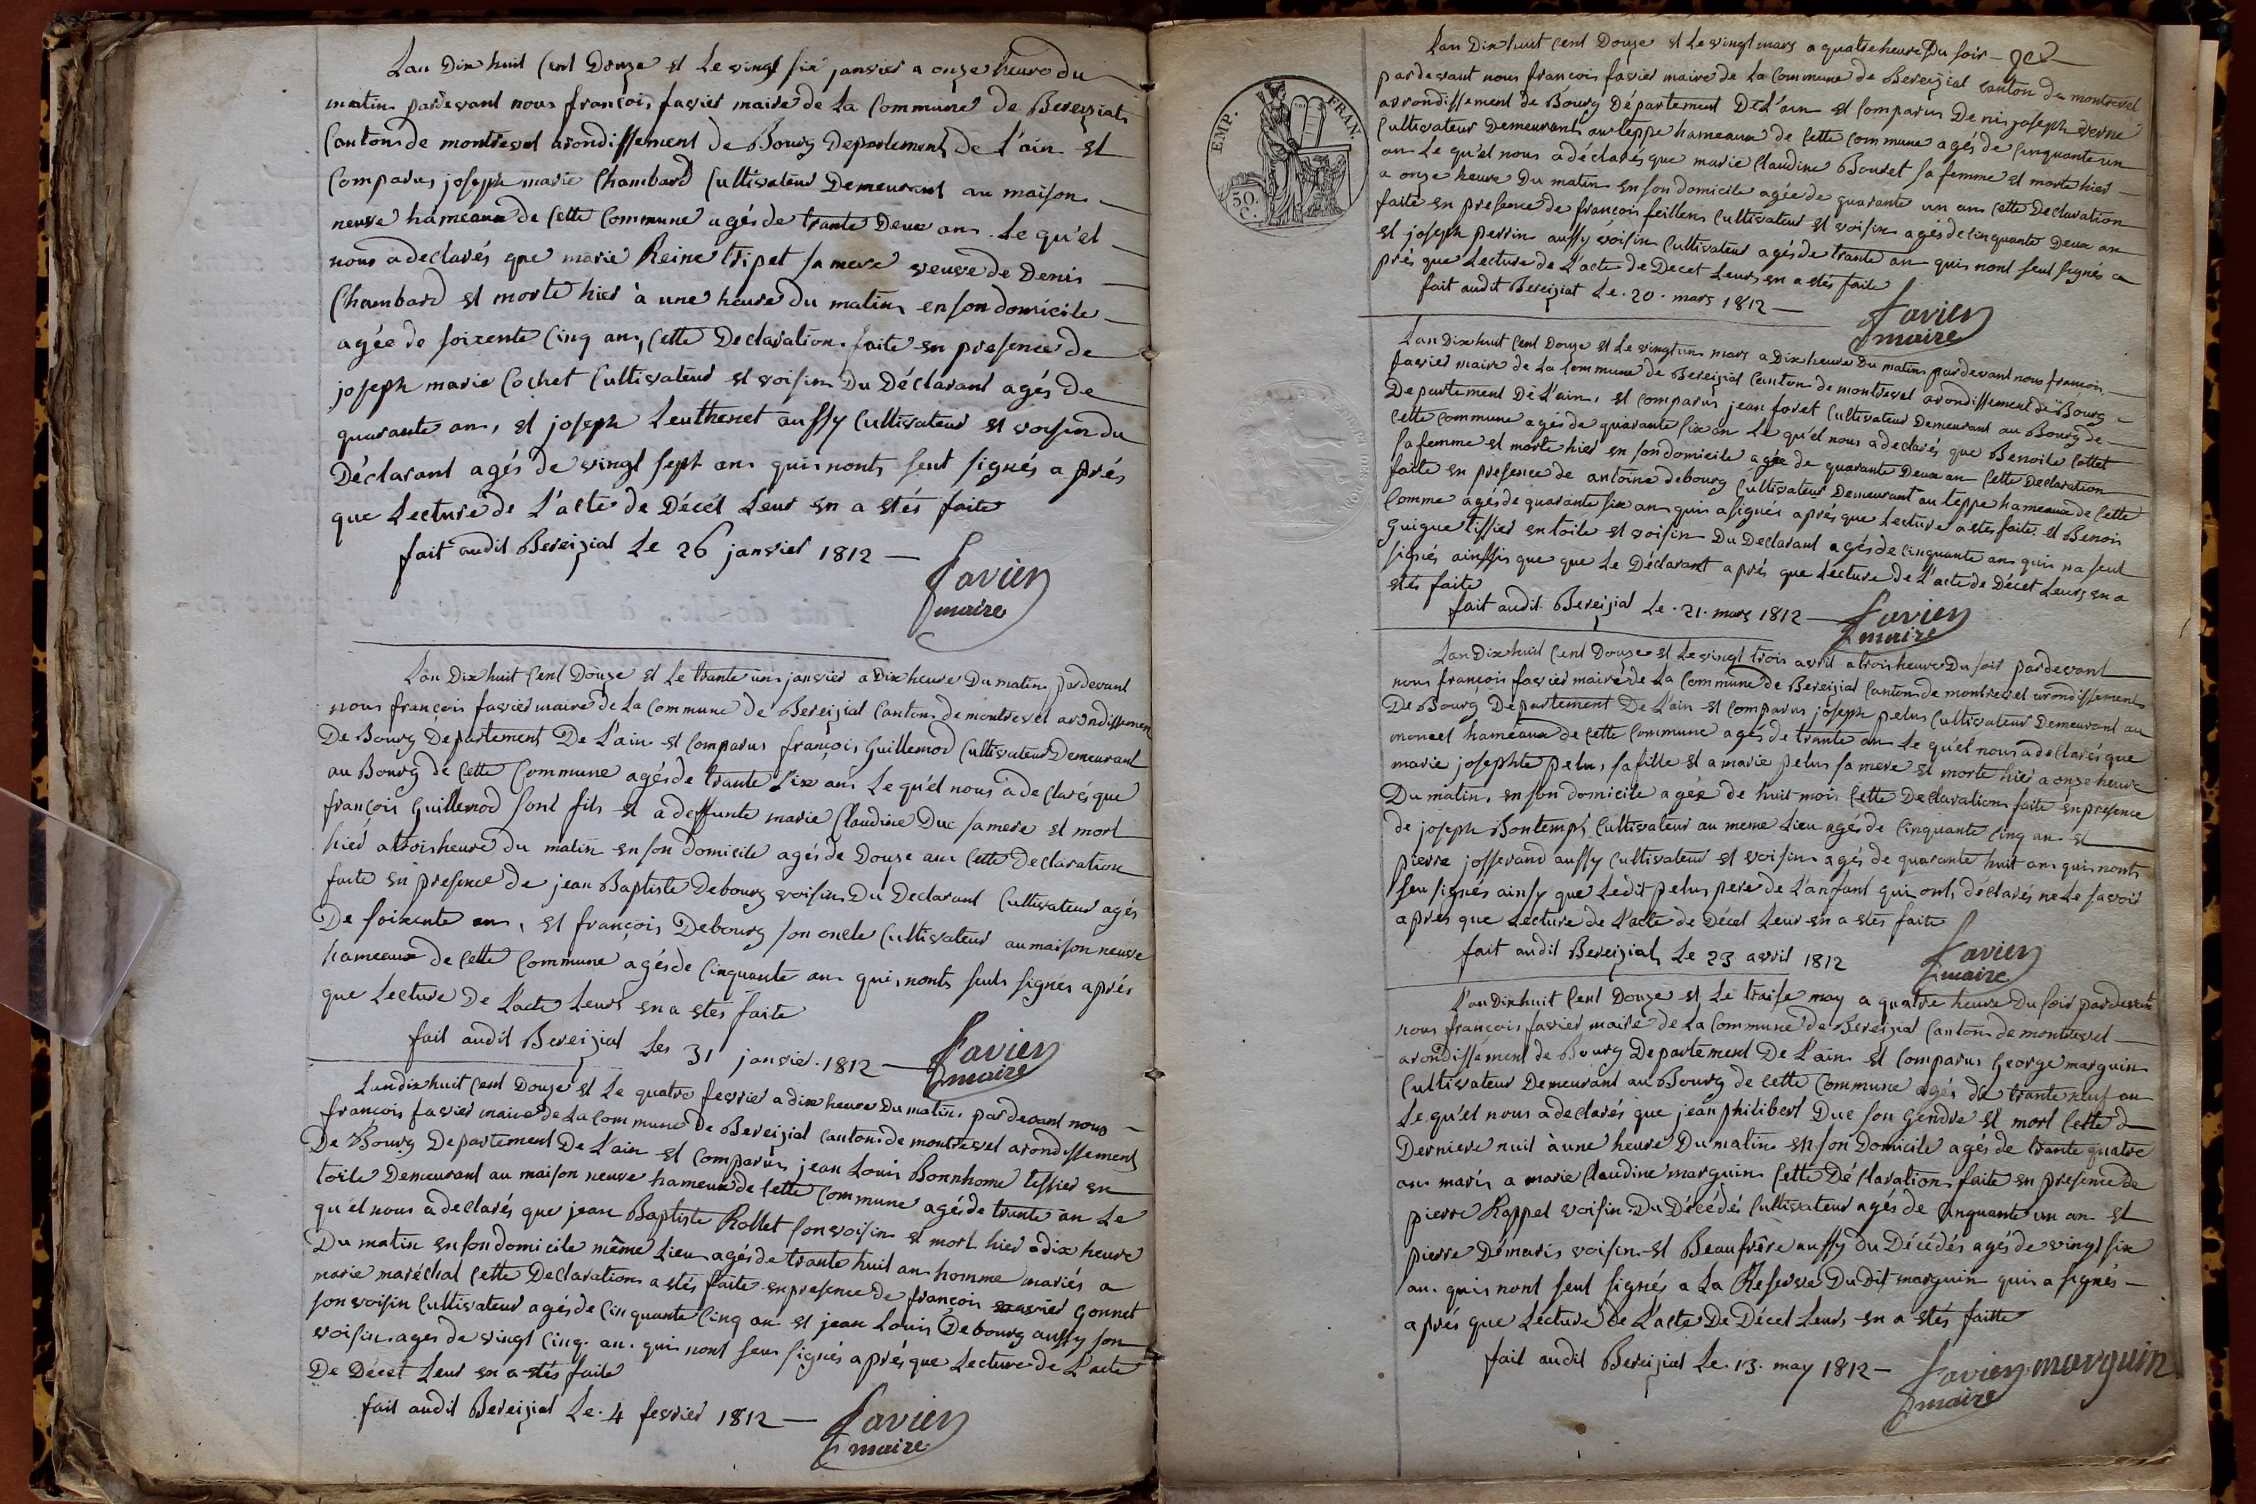 Lan Dix huit Cent Douze et Le vingt six janvier a onze heure du
matin pardevant nous françois favier maire de La Commune de Bereiziat
Canton de montrevel arondissement de Bourg Departement de L'ain et
Comparus joseph marie Chambard Cultivateur Demeurant au maison
neuve hameaux de Cette Commune agés de trante Deux an Le qu'el
nous a declarés que marie Reine tripet sa mere veuve de Denis
Chambard et morte hier à une heure du matin en son domicile
agée de soixente Cinq an, Cette Declaration faite en presence de
joseph marie Cochet Cultivateur et voisin Du Déclarant agés de
quarante an, et joseph Leuthenet aussy Cultivateur et voisin du
Déclarant agés de vingt sept an qui nonts seut signés a prés
que Lecture de L'acte de Décét Leur en a etés faite
fait audit Bereiziat Le 26 janvier 1812
favier
maire
Lan Dix huit Cent Douze et Le trante un janvier a Dix heure Du matin pardevant
nous françois favier maire de La Commune de Bereiziat Canton de montrevel arondissement
De Bourg Departement De L'ain et Comparus françois Guillemod Cultivateur Demeurant
au Bourg de Cette Commune agés de trante six an Le qu'el nous a declarés que
françois Guillemod sont fils et a deffunte marie Claudine Duc sa mere et mort
hier a trois heure du matin en son domicile agés de Douze an Cette Declaration
faite en presence de jean Baptiste Debourg voisin Du Declarant Cultivateur agés
De soixente an, et françois Debourg son oncle Cultivateur au maison neuve
hameaux de Cette Commune agés de Cinquante an qui nonts seuts signés aprés
que Lecture De L'acte Leurs en a etés faite
fait audit Bereiziat Les 31 janvier 1812
favier
maire
Lan dix huit Cent Douze et Le quatre fevrier a dix heure Du matin pardevant nous
françois favier maire de La Commune de Bereiziat Canton de montrevel arondissement
De Bourg Departement De L'ain et Comparus jean Louis Bonnhome tissier en
toile Demeurant au maison neuve hameux de Cette Commune agés de trante an Le
qu'el nous a declarés que jean Baptiste Rollet son voisin et mort hier a dix heure
Du matin en son domicile même Lieu agés de trante huit an homme mariés a
marie maréchal Cette Declaration a etés faite en presence de françois Gonnet
son voisin Cultivateur agés de Cinquante Cinq an et jean Louis Debourg aussy son
voisin ages de vingt Cinq an qui nont seu signés aprés que Lecture de L'acte
De Décét Leur en a etés faite
fait audit Bereiziat Le 4 fevrier 1812
favier
maire
EMP. FRAN.
50. C.
Lan Dix huit Cent Douze et Le vingt mars a quatre heure Du soir
pardevant nous françois favier maire de La Commune de Bereiziat Canton de montrevel
arrondissement de Bourg Département De L'ain et Comparus Denis joseph verne
Cultivateur Demeurant au teppe hameaux de Cette Commune agés de Cinquante un
an Le qu'el nous a déclarés que marie Claudine Bouvet sa femme et morte hier
a onze heure Du matin en son domicile agée de quarante un an Cette Declaration
faite en presence de françois feillens Cultivateur et voisin agés de Cinquante Deux an
et joseph perrin aussy voisin Cultivateur agés de trante an qui nont seut signés a
prés que Lecture de L'acte de Decet Leurs en a etés faite
fait audit Bereiziat Le 20 mars 1812
favier
maire
Lan Dix huit Cent Douze et Le vingt un mars a Dix heure Du matin pardevant nous francois
favier maire de La Commune de Bereiziat Canton de montrevel arondissement de Bourg
Departement De L'ain, et Comparus jean foret Cultivateur Demeurant au Bourg de
Cette Commune agés de quarante six an Le qu'el nous a declarés que Benoite Cattet
sa femme et morte hier en son domicile agée de quarante Deux an Cette Declaration
faite en presence de antoine debourg Cultivateur Demeurant au teppe hameaux de Cette
Comme agés de quarante six an qui a signés aprés que Lecture a etes faite et Benoit
Guigue tissier en toile et voisin Du Declarant agés de Cinquante an qui na seut
signés ainssis que que Le Déclarant aprés que Lecture de L'acte de Décet Leurs en a
etés faite
fait audit Bereiziat Le 21 mars 1812
favier
maire
Lan Dix huit Cent Douze et Le vingt trois avril a trois heure Du soir pardevant
nous françois favier maire de La Commune de Bereiziat Canton de montrevel arondissement
De Bourg Departement De L'ain et Comparus joseph pelus Cultivateur Demeurant au
moncel hameaux de Cette Commune agés de trante an Le qu'el nous a declarés que
marie josephte pelus, sa fille et a marie pelus sa mere et morte hier a onze heure
Du matin, en son domicile agée de huit mois Cette Declaration faite en presence
de joseph Bontemps Cultivateur au meme Lieu agés de Cinquante Cinq an et
pierre josserand aussy Cultivateur et voisin agés de quarante huit an qui nonts
seu signés ainsy que Ledit pelus pere de L'anfant qui onts declarés ne Le savoir
aprés que Lecture de L'acte de Décet Leur en a etés faite
fait audit Bereiziat Le 23 avril 1812
favier
maire
L'an Dix huit Cent Douze et Le traise may a quatre heure Du soir pardevant
nous françois favier maire de La Commune de Bereiziat Canton de montrevel
arondissement de Bourg Departement De L'ain et Comparus George marguin
Cultivateur Demeurant au Bourg de Cette Commune agés de trante neuf an
Le qu'el nous a declarés que jean philibert Duc son Gendre et mort Cette
Derniere nuit à une heure Du matin en son Domicile agés de trante quatre
an mariés a marie Claudine marguin Cette Déclaration faite en presence de
pierre Rappel voisin Du Décédés Cultivateur agés de Cinquante un an et
pierre Démaris voisin et Beaufrére aussy du Décédés agés de vingt six
an qui nont seut signés a La Reserve Dudit marguin qui a signés
aprés que Lecture De L'acte De Décet Leurs en a etés faitte
fait audit Bereiziat Le 13 may 1812
favier marguin
maire